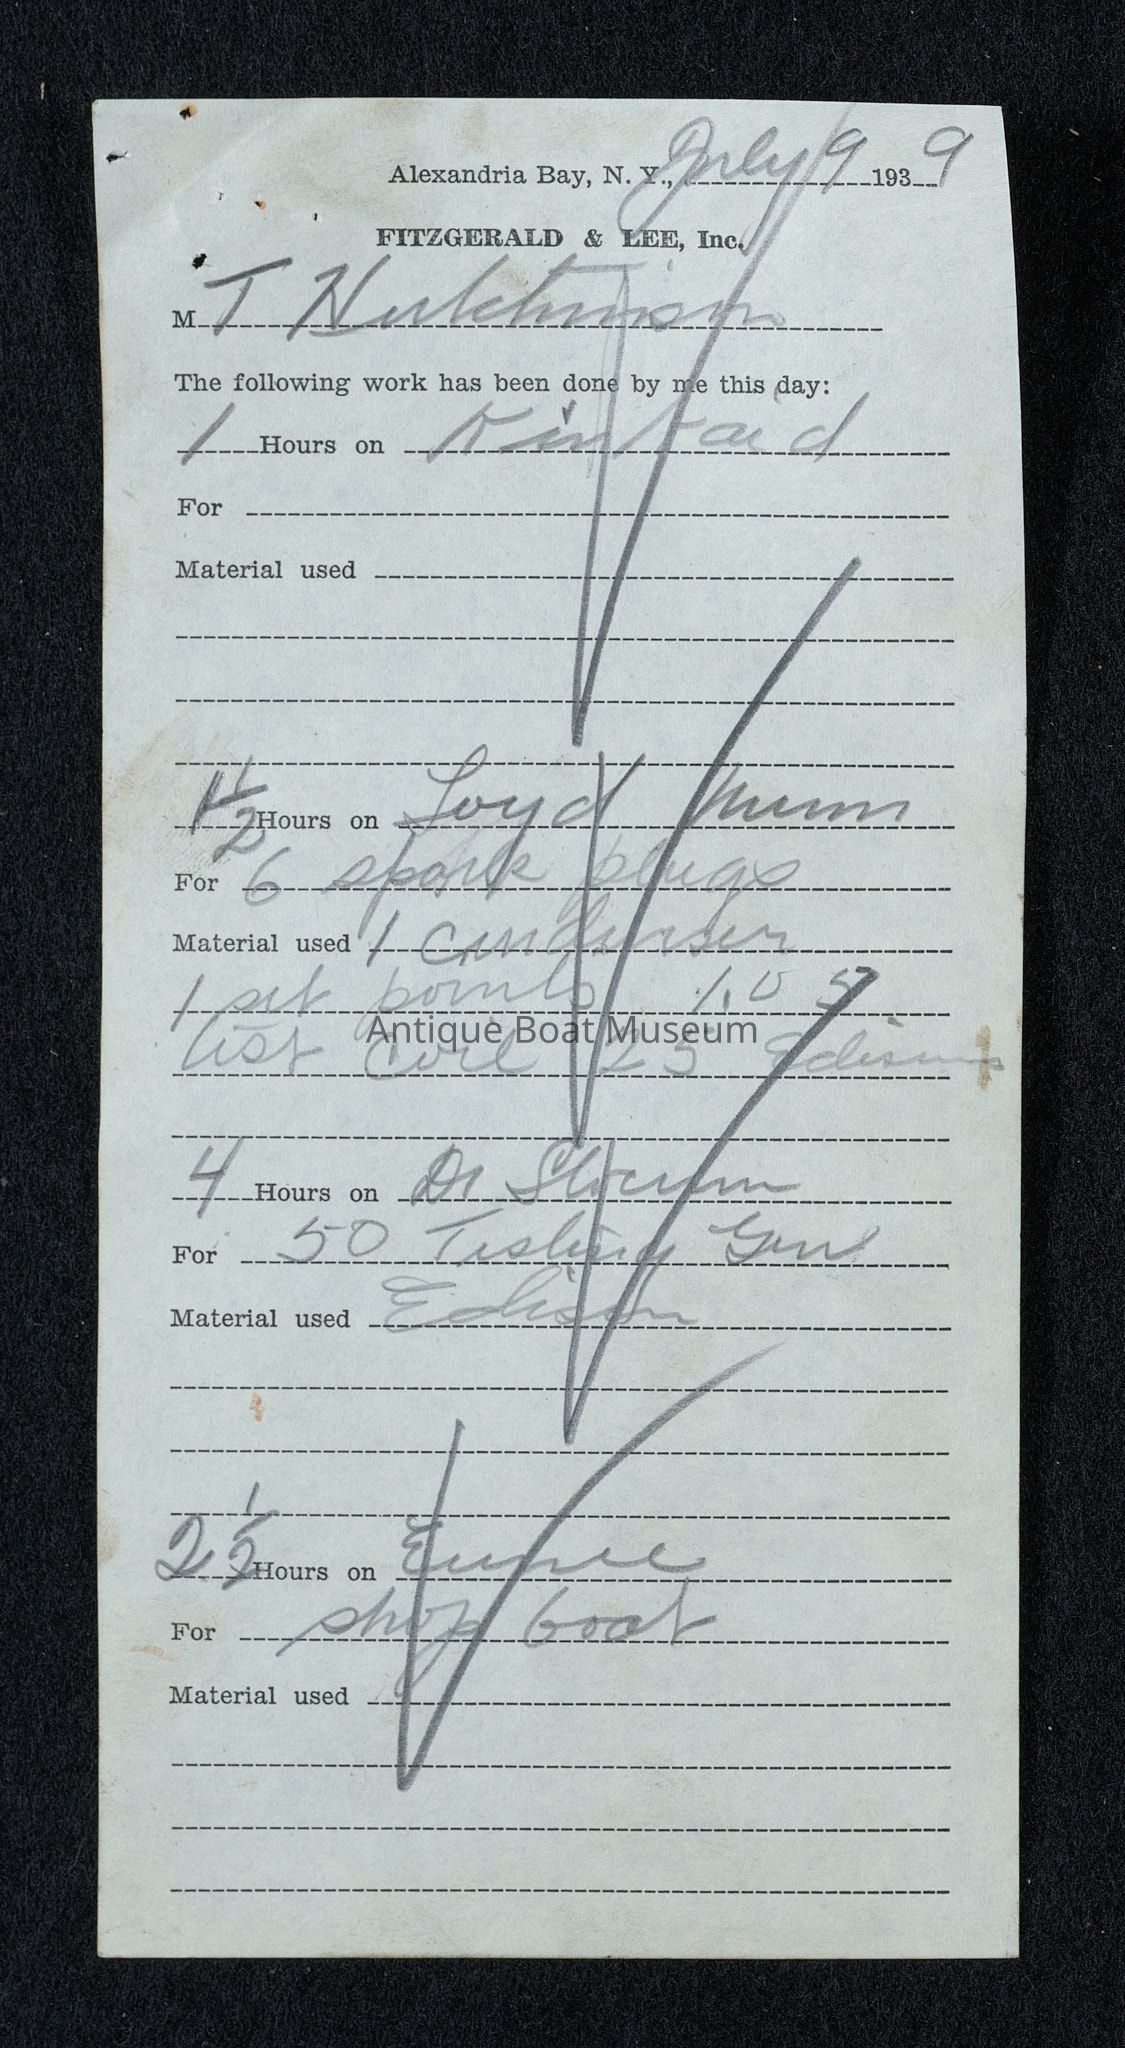 Alexandria Bay, N. Y., July 9 1939
FITZGERALD & LEE, Inc.
M T Hutchinson
The following work has been done by me this day:
1 Hours on Kinkaid
For
Material used
1 1/2 Hours on Loyd Munn
For 6 spark plugs
Material used 1 condenser
1 set points 1.05
Antique Boat Museum
test coil 25 Edison
4 Hours on Dr Slocum
For 50 Testing Gen
Material used Edison
2 1/2 Hours on
For shop boat
Material used